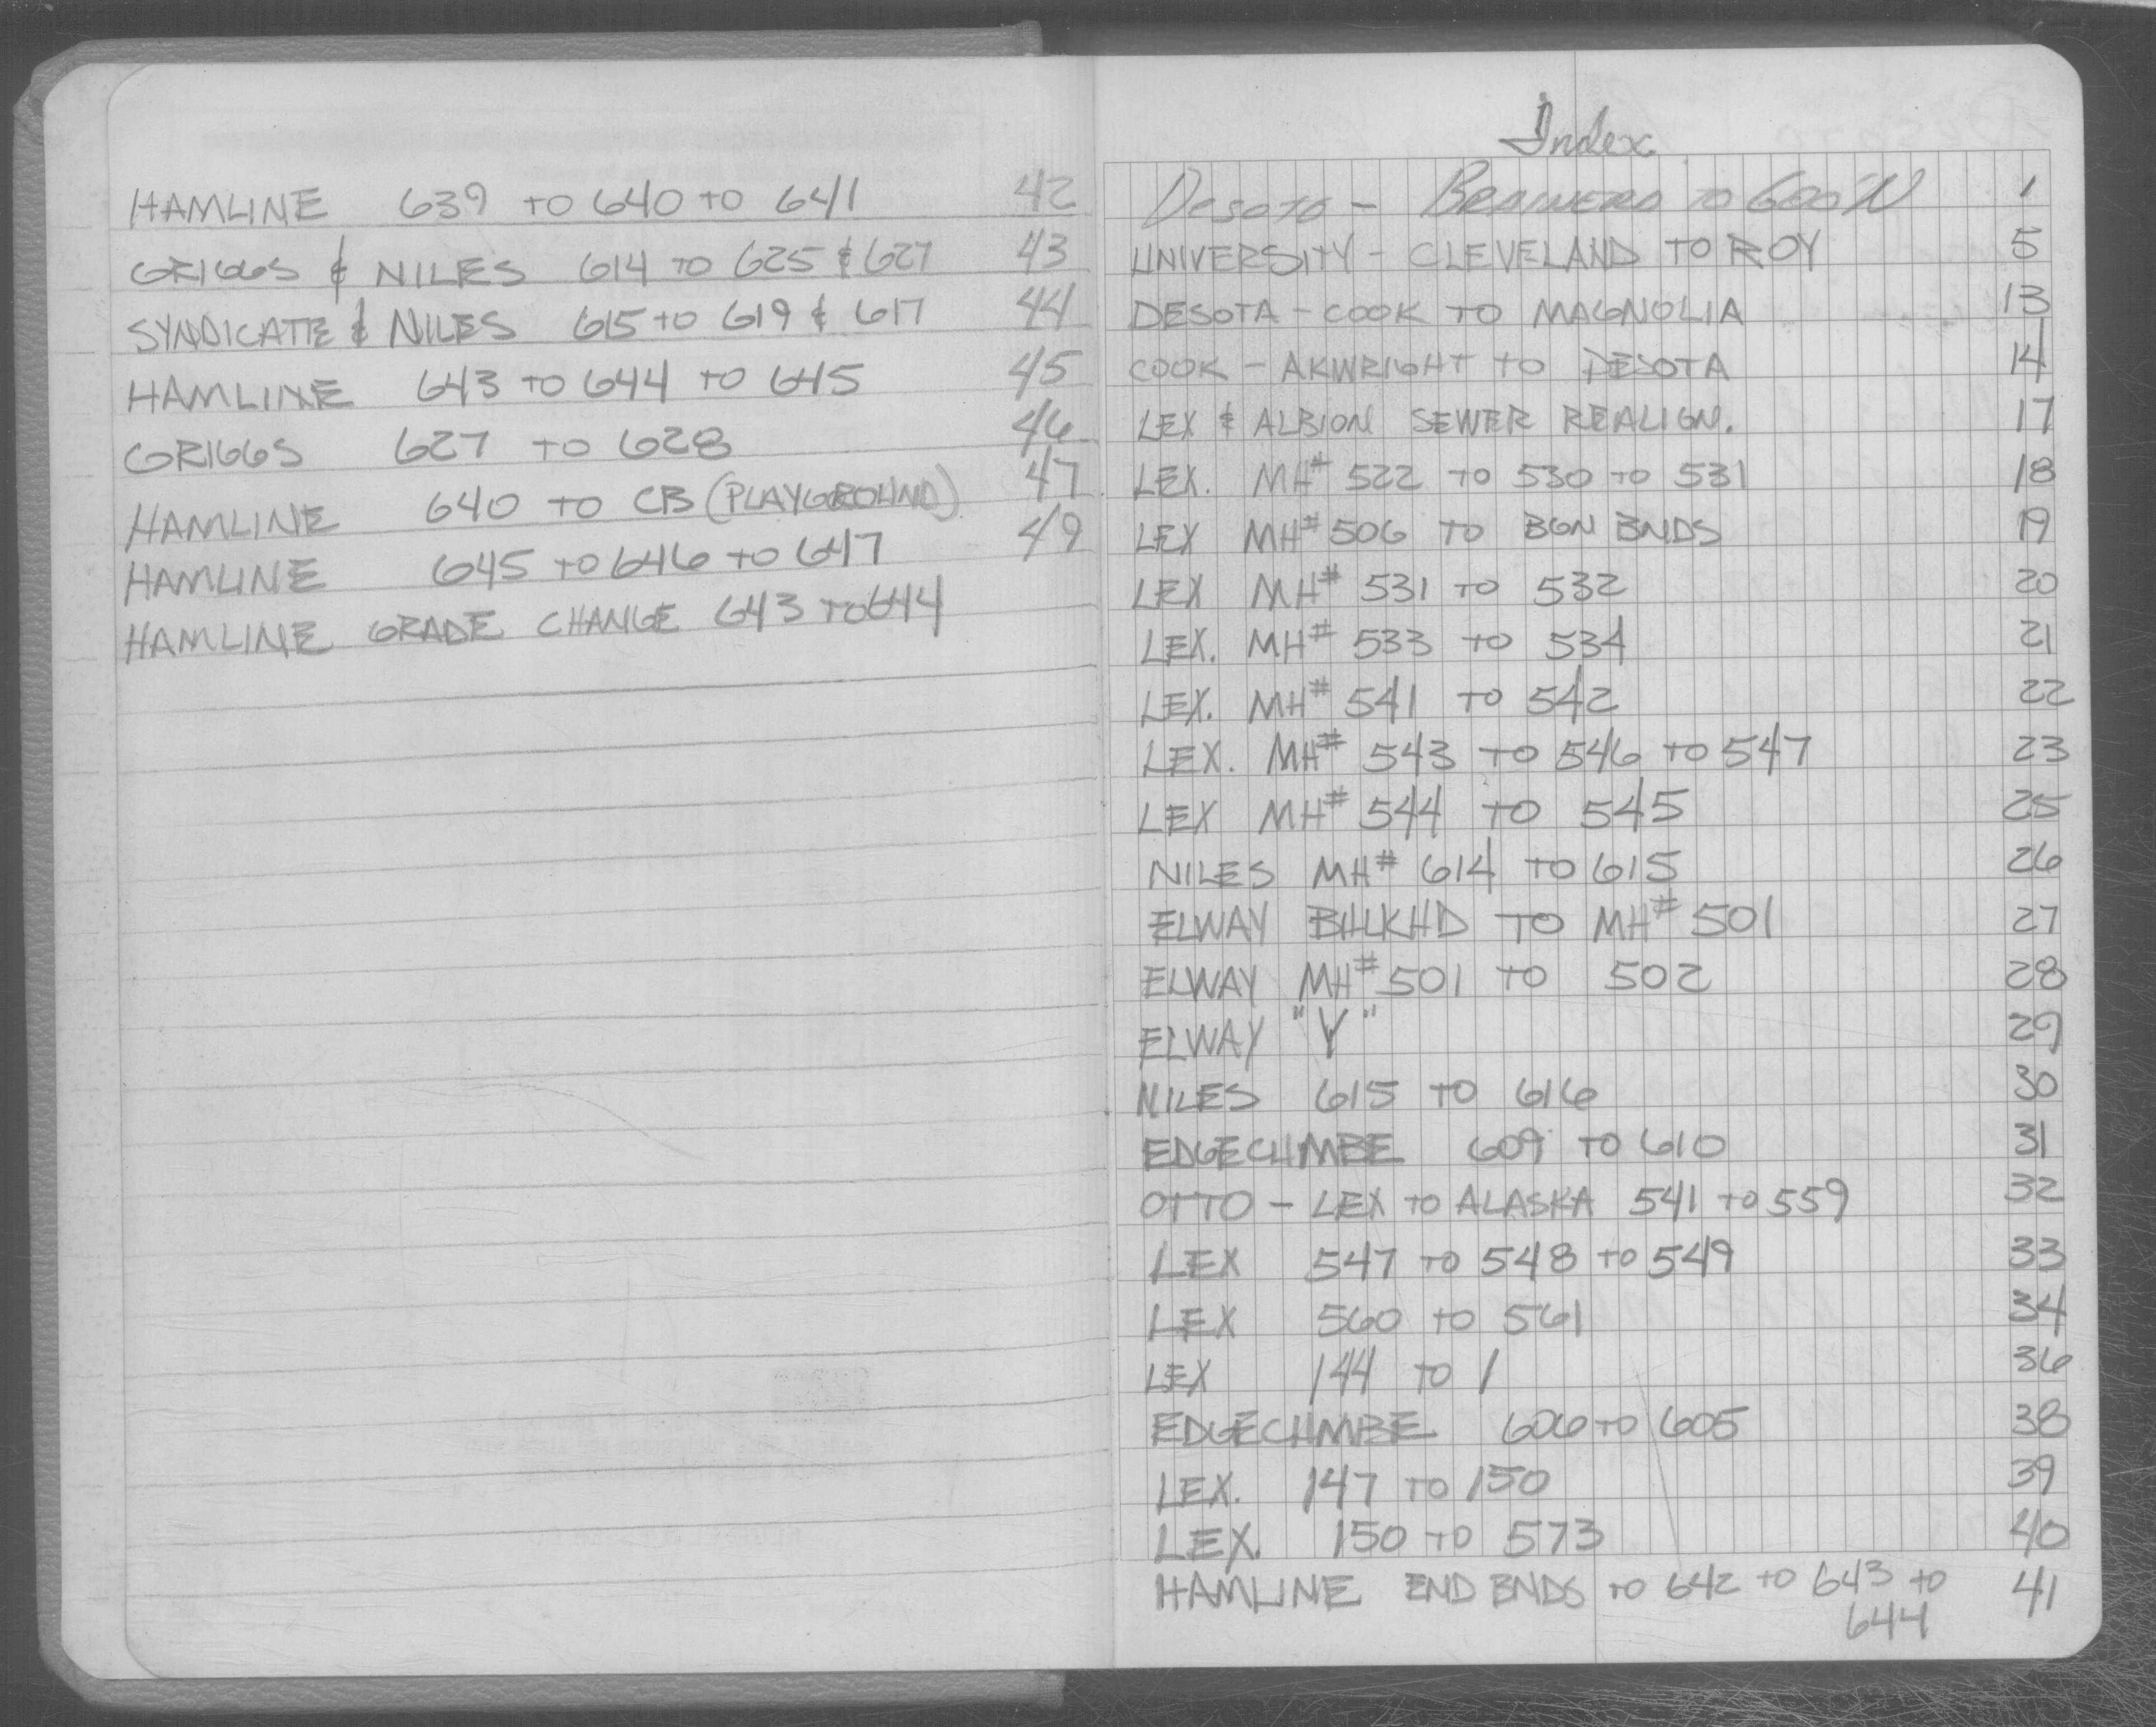 HAMLINE 639 TO 640 TO 641 42
GRIGGS & NILES 614 TO 625 & 627 43
SYNDICATE & NILES 615 TO 619 & 617 44
HAMLINE 643 TO 644 TO 645 45
GRIGGS 627 TO 628 46
HAMLINE 640 TO CB (PLAYGROUND) 47
HAMLINE 645 TO 646 TO 647 49
HAMLINE GRADE CHANGE 643 TO 644
Index
DESOTO - BRAINERD TO 600'N 1
UNIVERSITY - CLEVELAND TO ROY 5
DESOTA - COOK TO MAGNOLIA 13
COOK - AKWRIGHT TO DESOTA 14
LEX & ALBION SEWER REALIGN. 17
LEX. MH# 522 TO 530 TO 531 18
LEX MH# 506 TO BGN BNDS 19
LEX MH# 531 TO 532 20
LEX. MH# 533 TO 534 21
LEX. MH# 541 TO 542 22
LEX. MH# 543 TO 546 TO 547 23
LEX MH# 544 TO 545 25
NILES MH# 614 TO 615 26
ELWAY BULKHD TO MH# 501 27
ELWAY MH# 501 TO 502 28
ELWAY "Y" 29
NILES 615 TO 616 30
EDGECUMBE 609 TO 610 31
OTTO - LEX TO ALASKA 541 TO 559 32
LEX 547 TO 548 TO 549 33
LEX 560 TO 561 34
LEX 144 TO 1 36
EDGECUMBE 606 TO 605 38
LEX. 147 TO 150 39
LEX. 150 TO 573 40
HAMLINE END BNDS TO 642 TO 643 TO 41
644